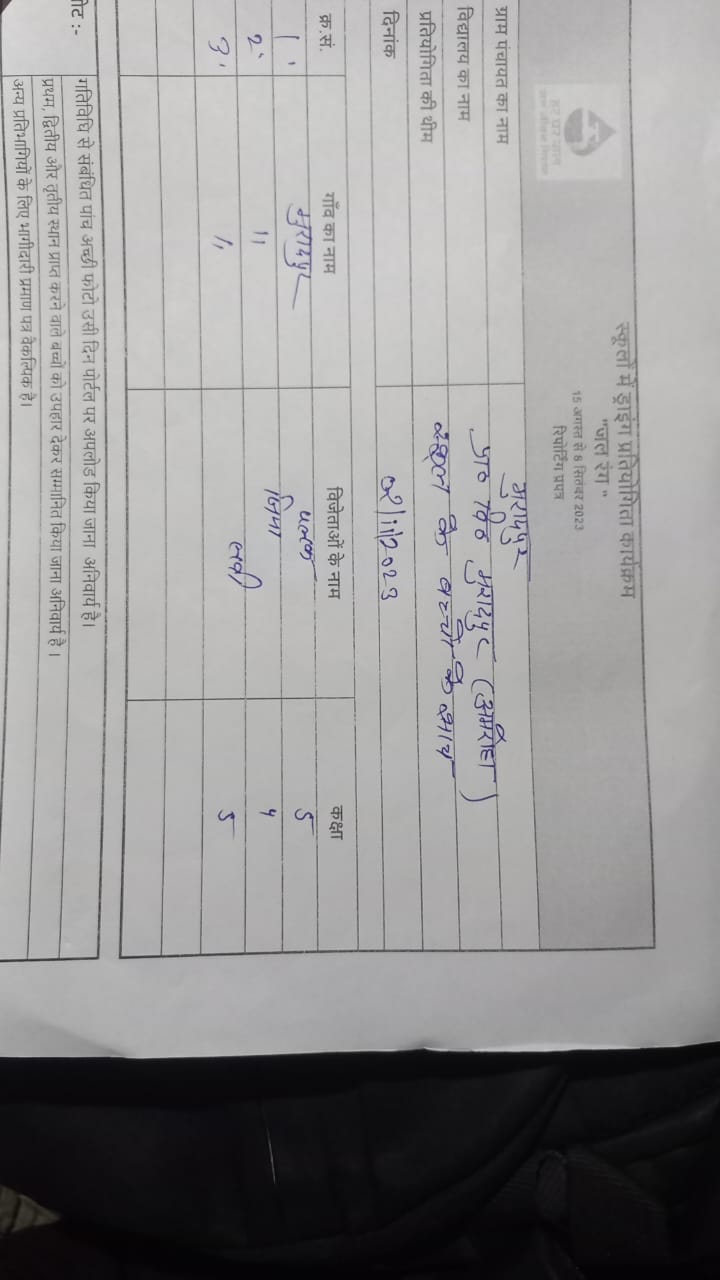 स्कूलों में ड्राइंग प्रतियोगिता कार्यक्रम
"जल रंग"
15 अगस्त से 8 सितंबर 2023
रिपोर्टिंग प्रपत्र
हर घर जल
जल जीवन मिशन
ग्राम पंचायत का नाम मुरादपुर
विद्यालय का नाम प्रा० वि० मुरादपुर (अमरोहा)
प्रतियोगिता की थीम स्कूल के बच्चो के साथ
दिनांक
क्र.सं. गाँव का नाम विजेताओं के नाम कक्षा
1. मुरादपुर पलक 5
2. 11 4
3. 11 5
नोट :-
गतिविधि से संबंधित पांच अच्छी फोटो उसी दिन पोर्टल पर अपलोड किया जाना अनिवार्य है।
प्रथम, द्वितीय और तृतीय स्थान प्राप्त करने वाले बच्चों को उपहार देकर सम्मानित किया जाना अनिवार्य है।
अन्य प्रतिभागियों के लिए भागीदारी प्रमाण पत्र वैकल्पिक है।